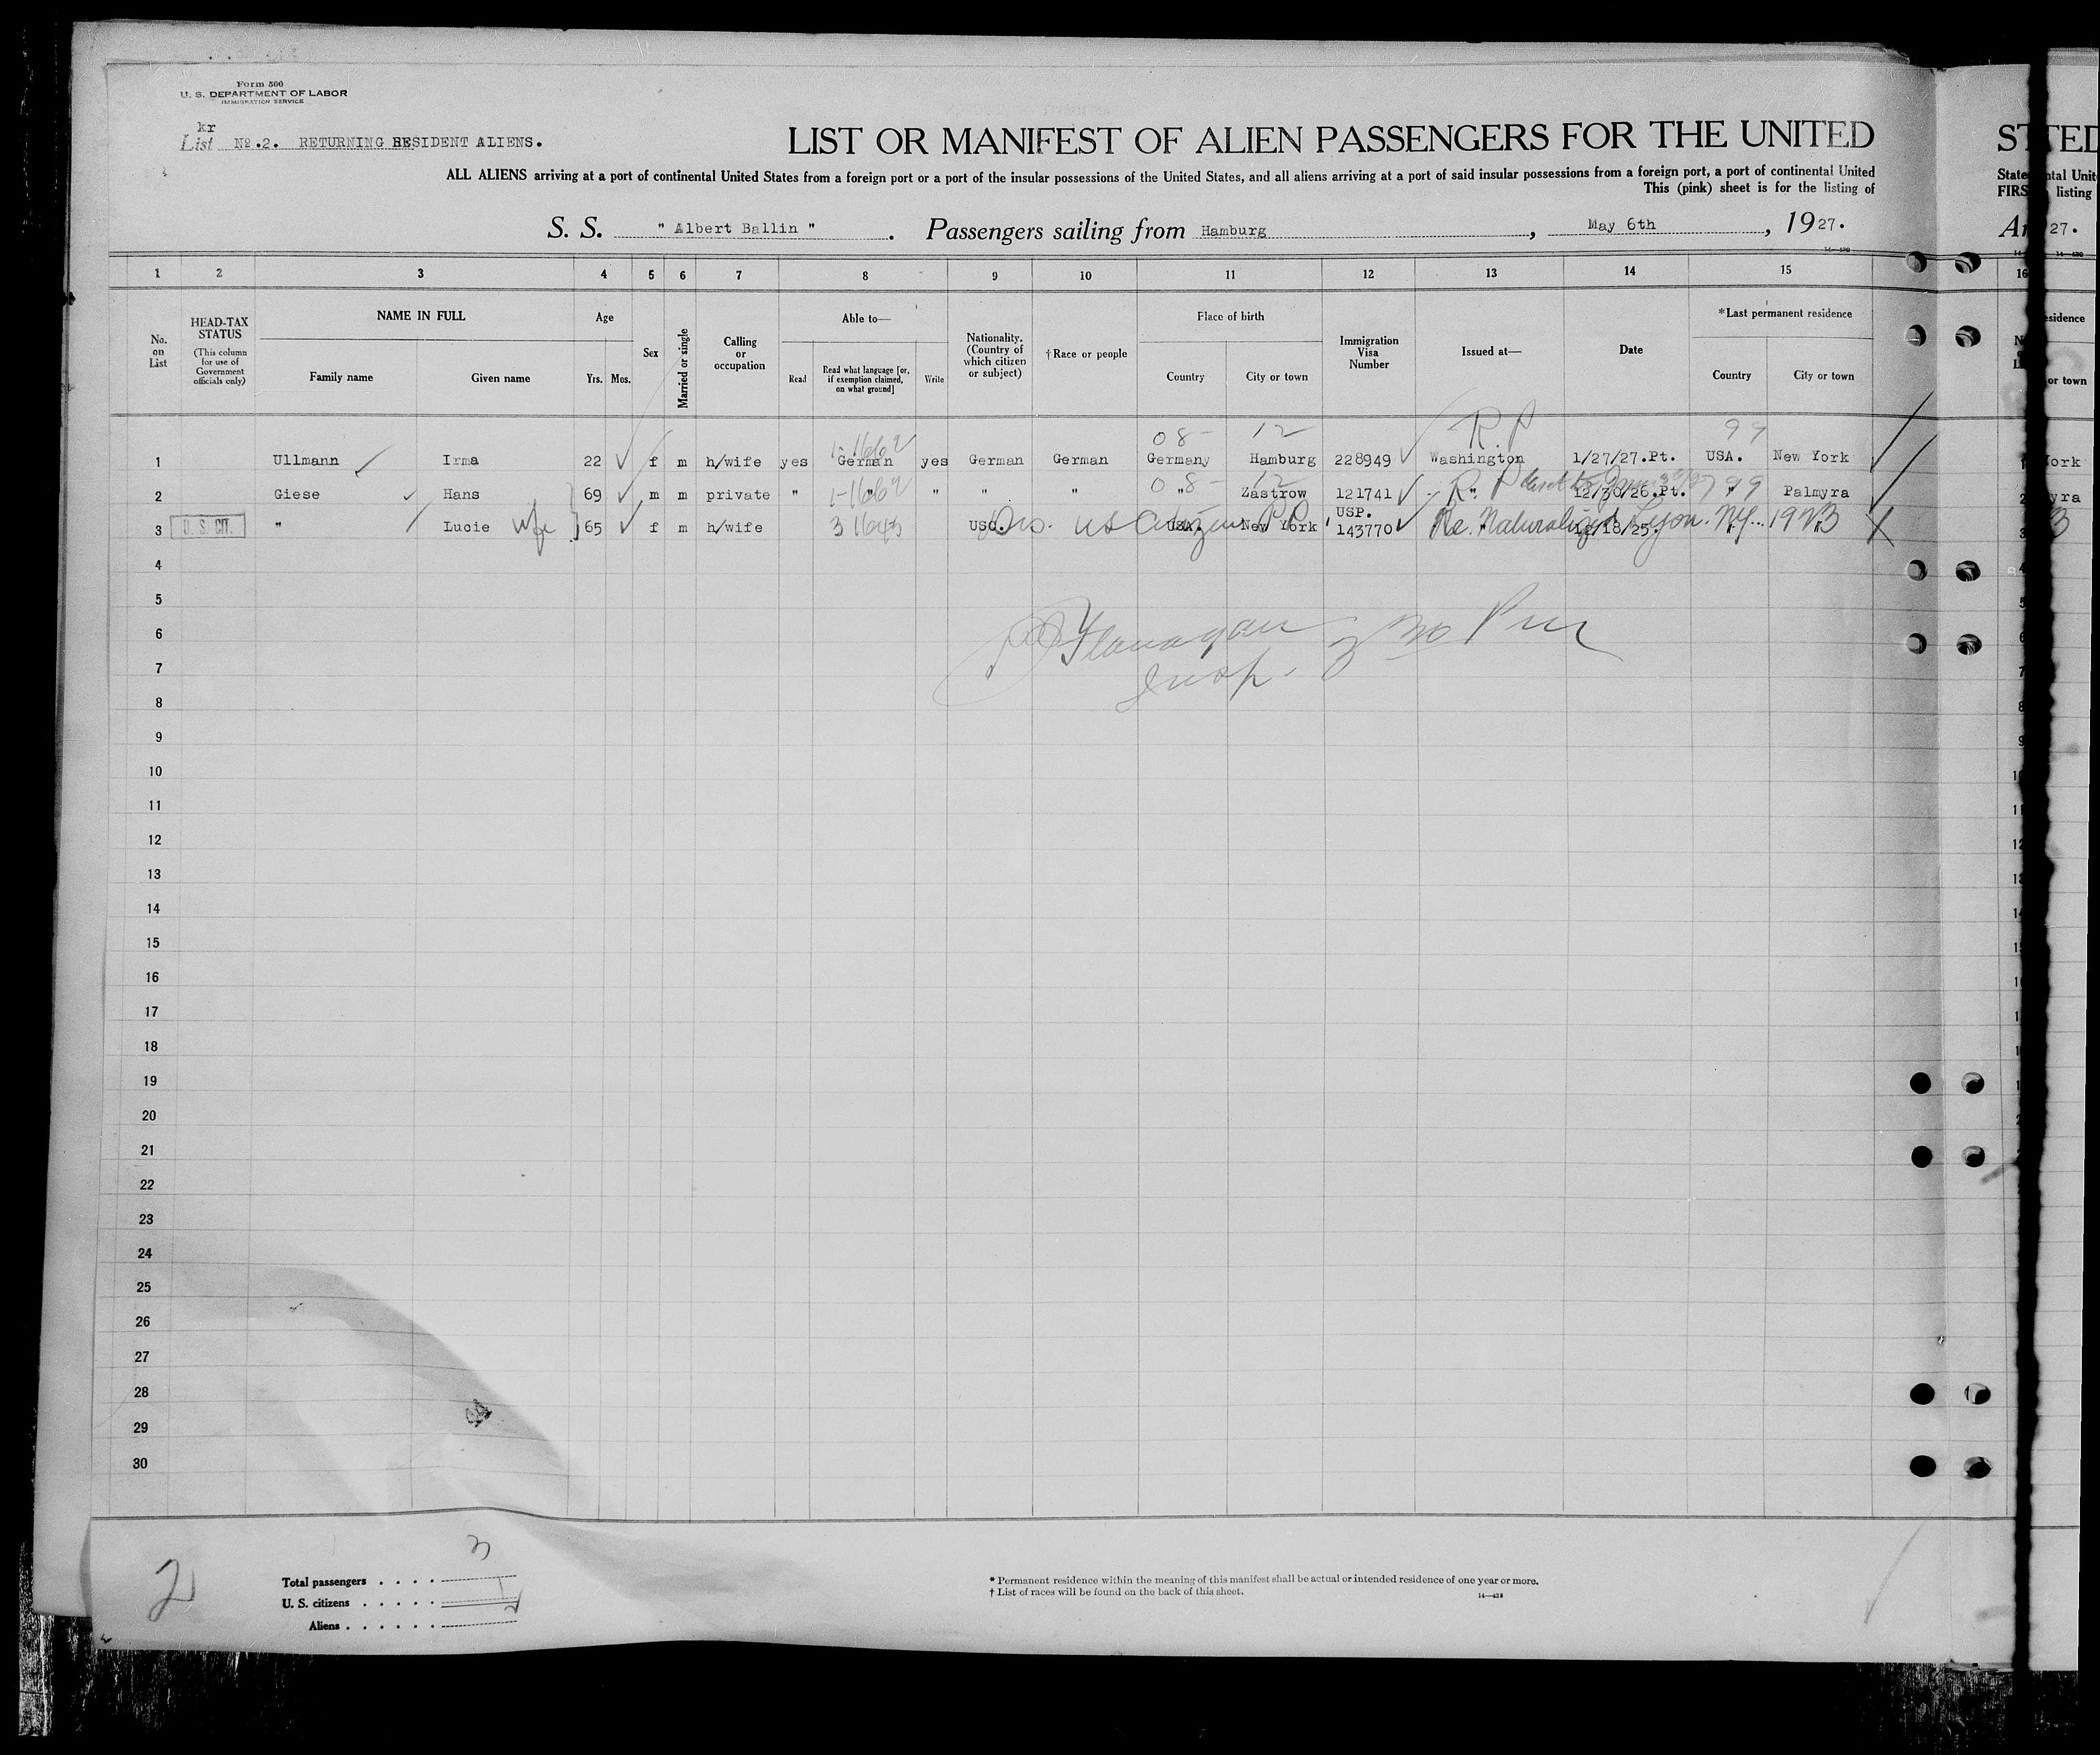 Form 500
U. S. DEPARTMENT OF LABOR
IMMIGRATION SERVICE
kr
List No.2. RETURNING RESIDENT ALIENS.
LIST OR MANIFEST OF ALIEN PASSENGERS FOR THE UNITED
ALL ALIENS arriving at a port of continental United States from a foreign port or a port of the insular possessions of the United States, and all aliens arriving at a port of said insular possessions from a foreign port, a port of continental United
This (pink) sheet is for the listing of
S. S. " Albert Ballin ". Passengers sailing from Hamburg, May 6th, 1927.
1 2 3 4 5 6 7 8 9 10 11 12 13 14 15
No. on List
HEAD-TAX STATUS
(This column for use of Government officials only)
NAME IN FULL
Family name
Given name
Age
Yrs. Mos.
Sex
Married or single
Calling or occupation
Able to—
Read
Read what language [or, if exemption claimed, on what ground]
Write
Nationality. (Country of which citizen or subject)
†Race or people
Place of birth
Country
City or town
Immigration Visa Number
Issued at—
Date
*Last permanent residence
Country
City or town
R. P
08- 12 99
1 Ullmann Irma 22 f m h/wife yes German yes German German Germany Hamburg 228949 Washington 1/27/27.Pt. USA. New York
08- 12 R. P 99
2 Giese Hans 69 m m private " " " " " " Zastrow 121741 " 12/30/26.Pt. " Palmyra
USP.
3 U. S. CIT. " Lucie Wife 65 f m h/wife USC. US Citizen PP. USA. New York 143770 Re. Naturalized Lyon. NY. 1923 /18/25.
4
5
6
7
8
9
10
11
12
13
14
15
16
17
18
19
20
21
22
23
24
25
26
27
28
29
30
Flanagan
Insp.
2
Total passengers . . . . 3
U. S. citizens . . . . . 1
Aliens . . . . . . 2
* Permanent residence within the meaning of this manifest shall be actual or intended residence of one year or more.
† List of races will be found on the back of this sheet.